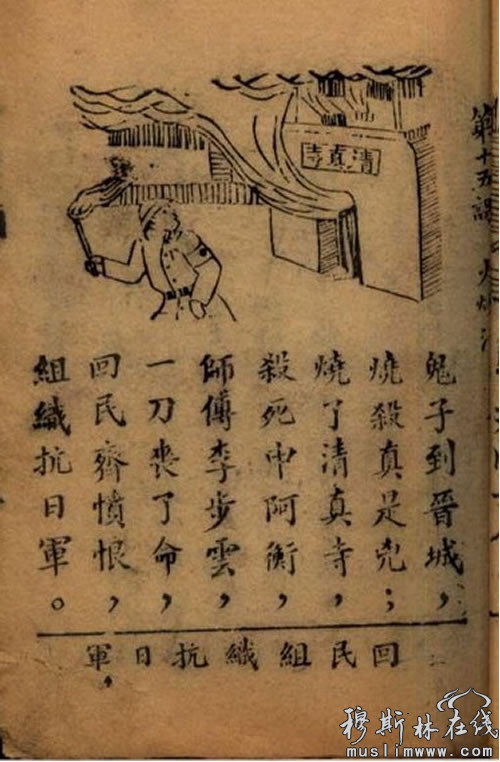 第十五課 火燒清
清真寺
鬼子到晉城,
燒殺真是兇;
燒了清真寺,
殺死中阿衡,
師傅李步雲,
一刀喪了命,
回民齊憤恨,
組織抗日軍。
回民組織抗日軍,
穆斯林在线
muslimwww.com